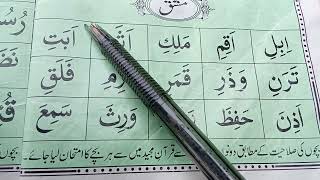 مشق
اِبِلِ اَقِمِ مَلِكِ اَبَتِ
تَرَنِ وَذَرِ قَمَرَ فَلَقِ
اَذِنَ حَفِظَ وَرِثَ سَمِعَ
بچوں کی صلاحیت کے مطابق سے قرآن مجید میں سے ہر بچے کا امتحان لیا جائے۔ بچوں